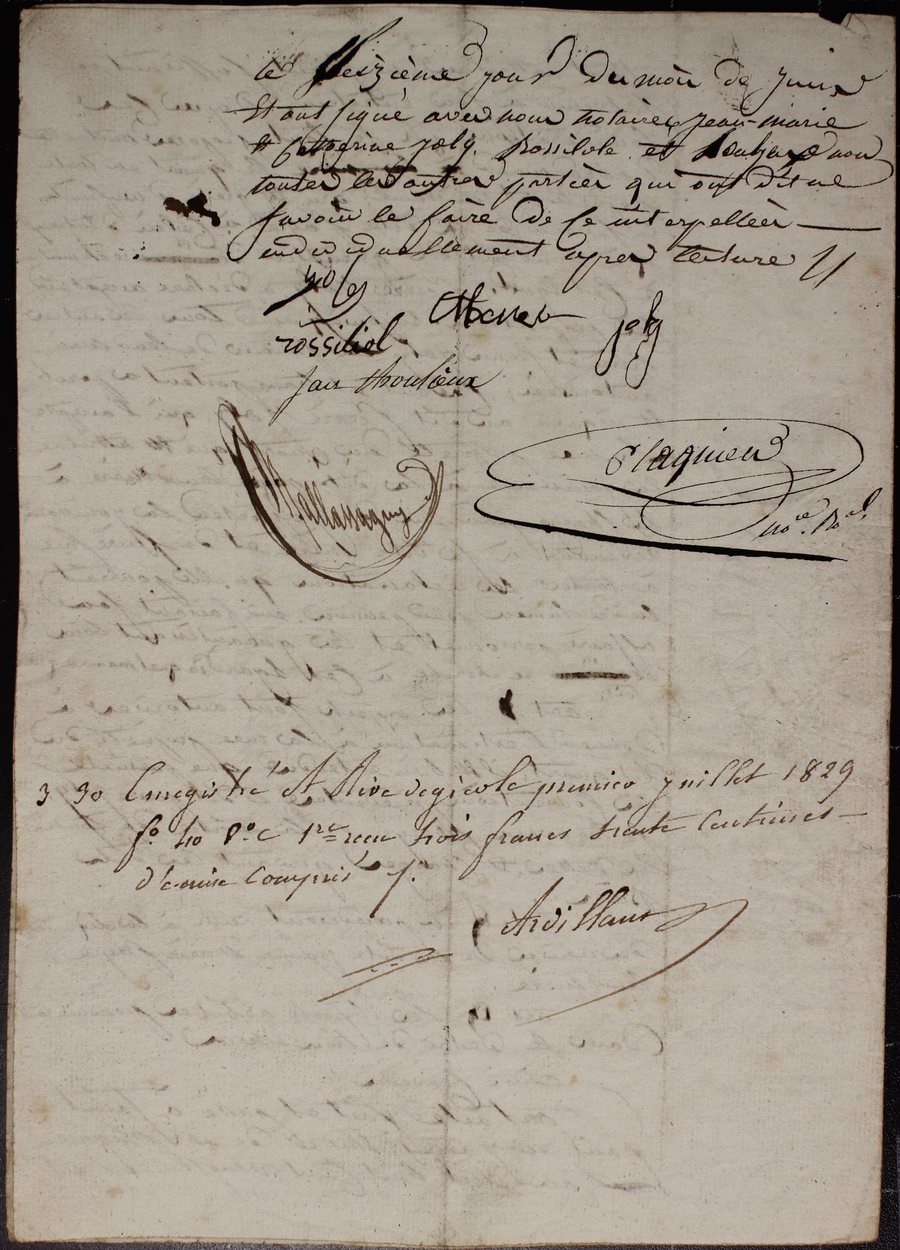 le seizième jour du mois de juin
Et ont signé avec nous notaire, jean-marie
et Catherine joly. Rossiliole et non
touter les autres partier qui ont dit ne
savoir le faire de ce interpellées —
individuellement apres lecture //
joly
rossiliol joly
jan
Mallassagny
Claquieu
no.re Ro.al
3 30 Enregistré At Rive degièrole premier juillet 1829
f.o 40 V.o C 1re reçu trois francs trente Centimes —
d'ecime Compris
Ardillaux